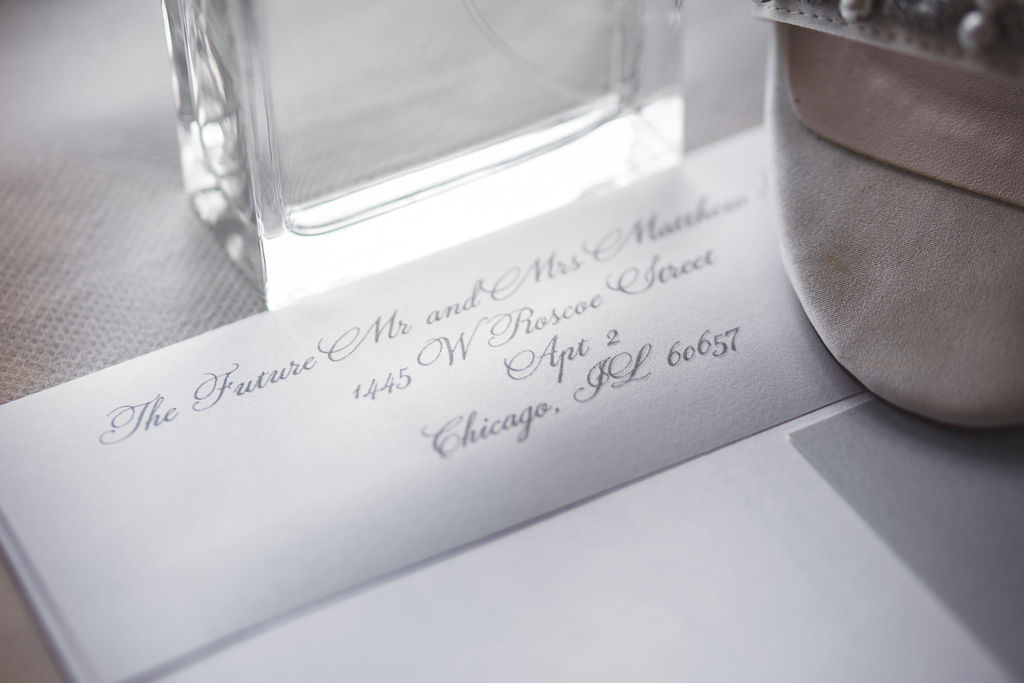 The Future Mr and Mrs Matthew
1445 W Roscoe Street
Apt 2
Chicago, IL 60657